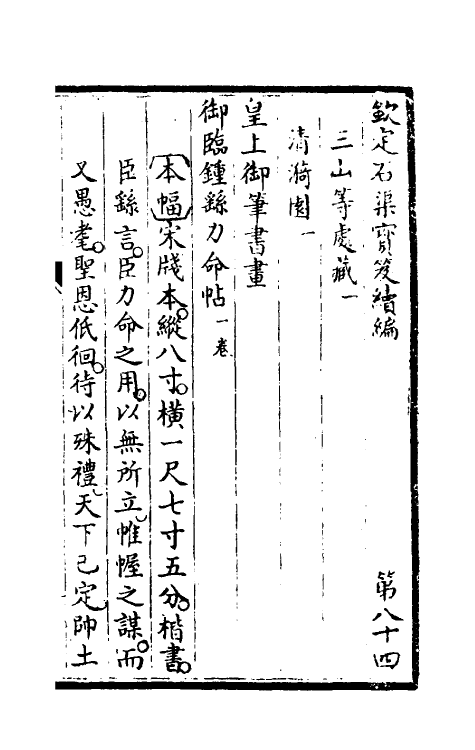 欽定石渠寶笈續編 第八十四
三山等處藏一
清漪園一
皇上御筆書畫
御臨鍾繇力命帖一卷
本幅宋牋本縱八寸橫一尺七寸五分楷書
臣繇言臣力命之用以無所立帷幄之謀而
又愚耄聖恩低徊待以殊禮天下已定帥土